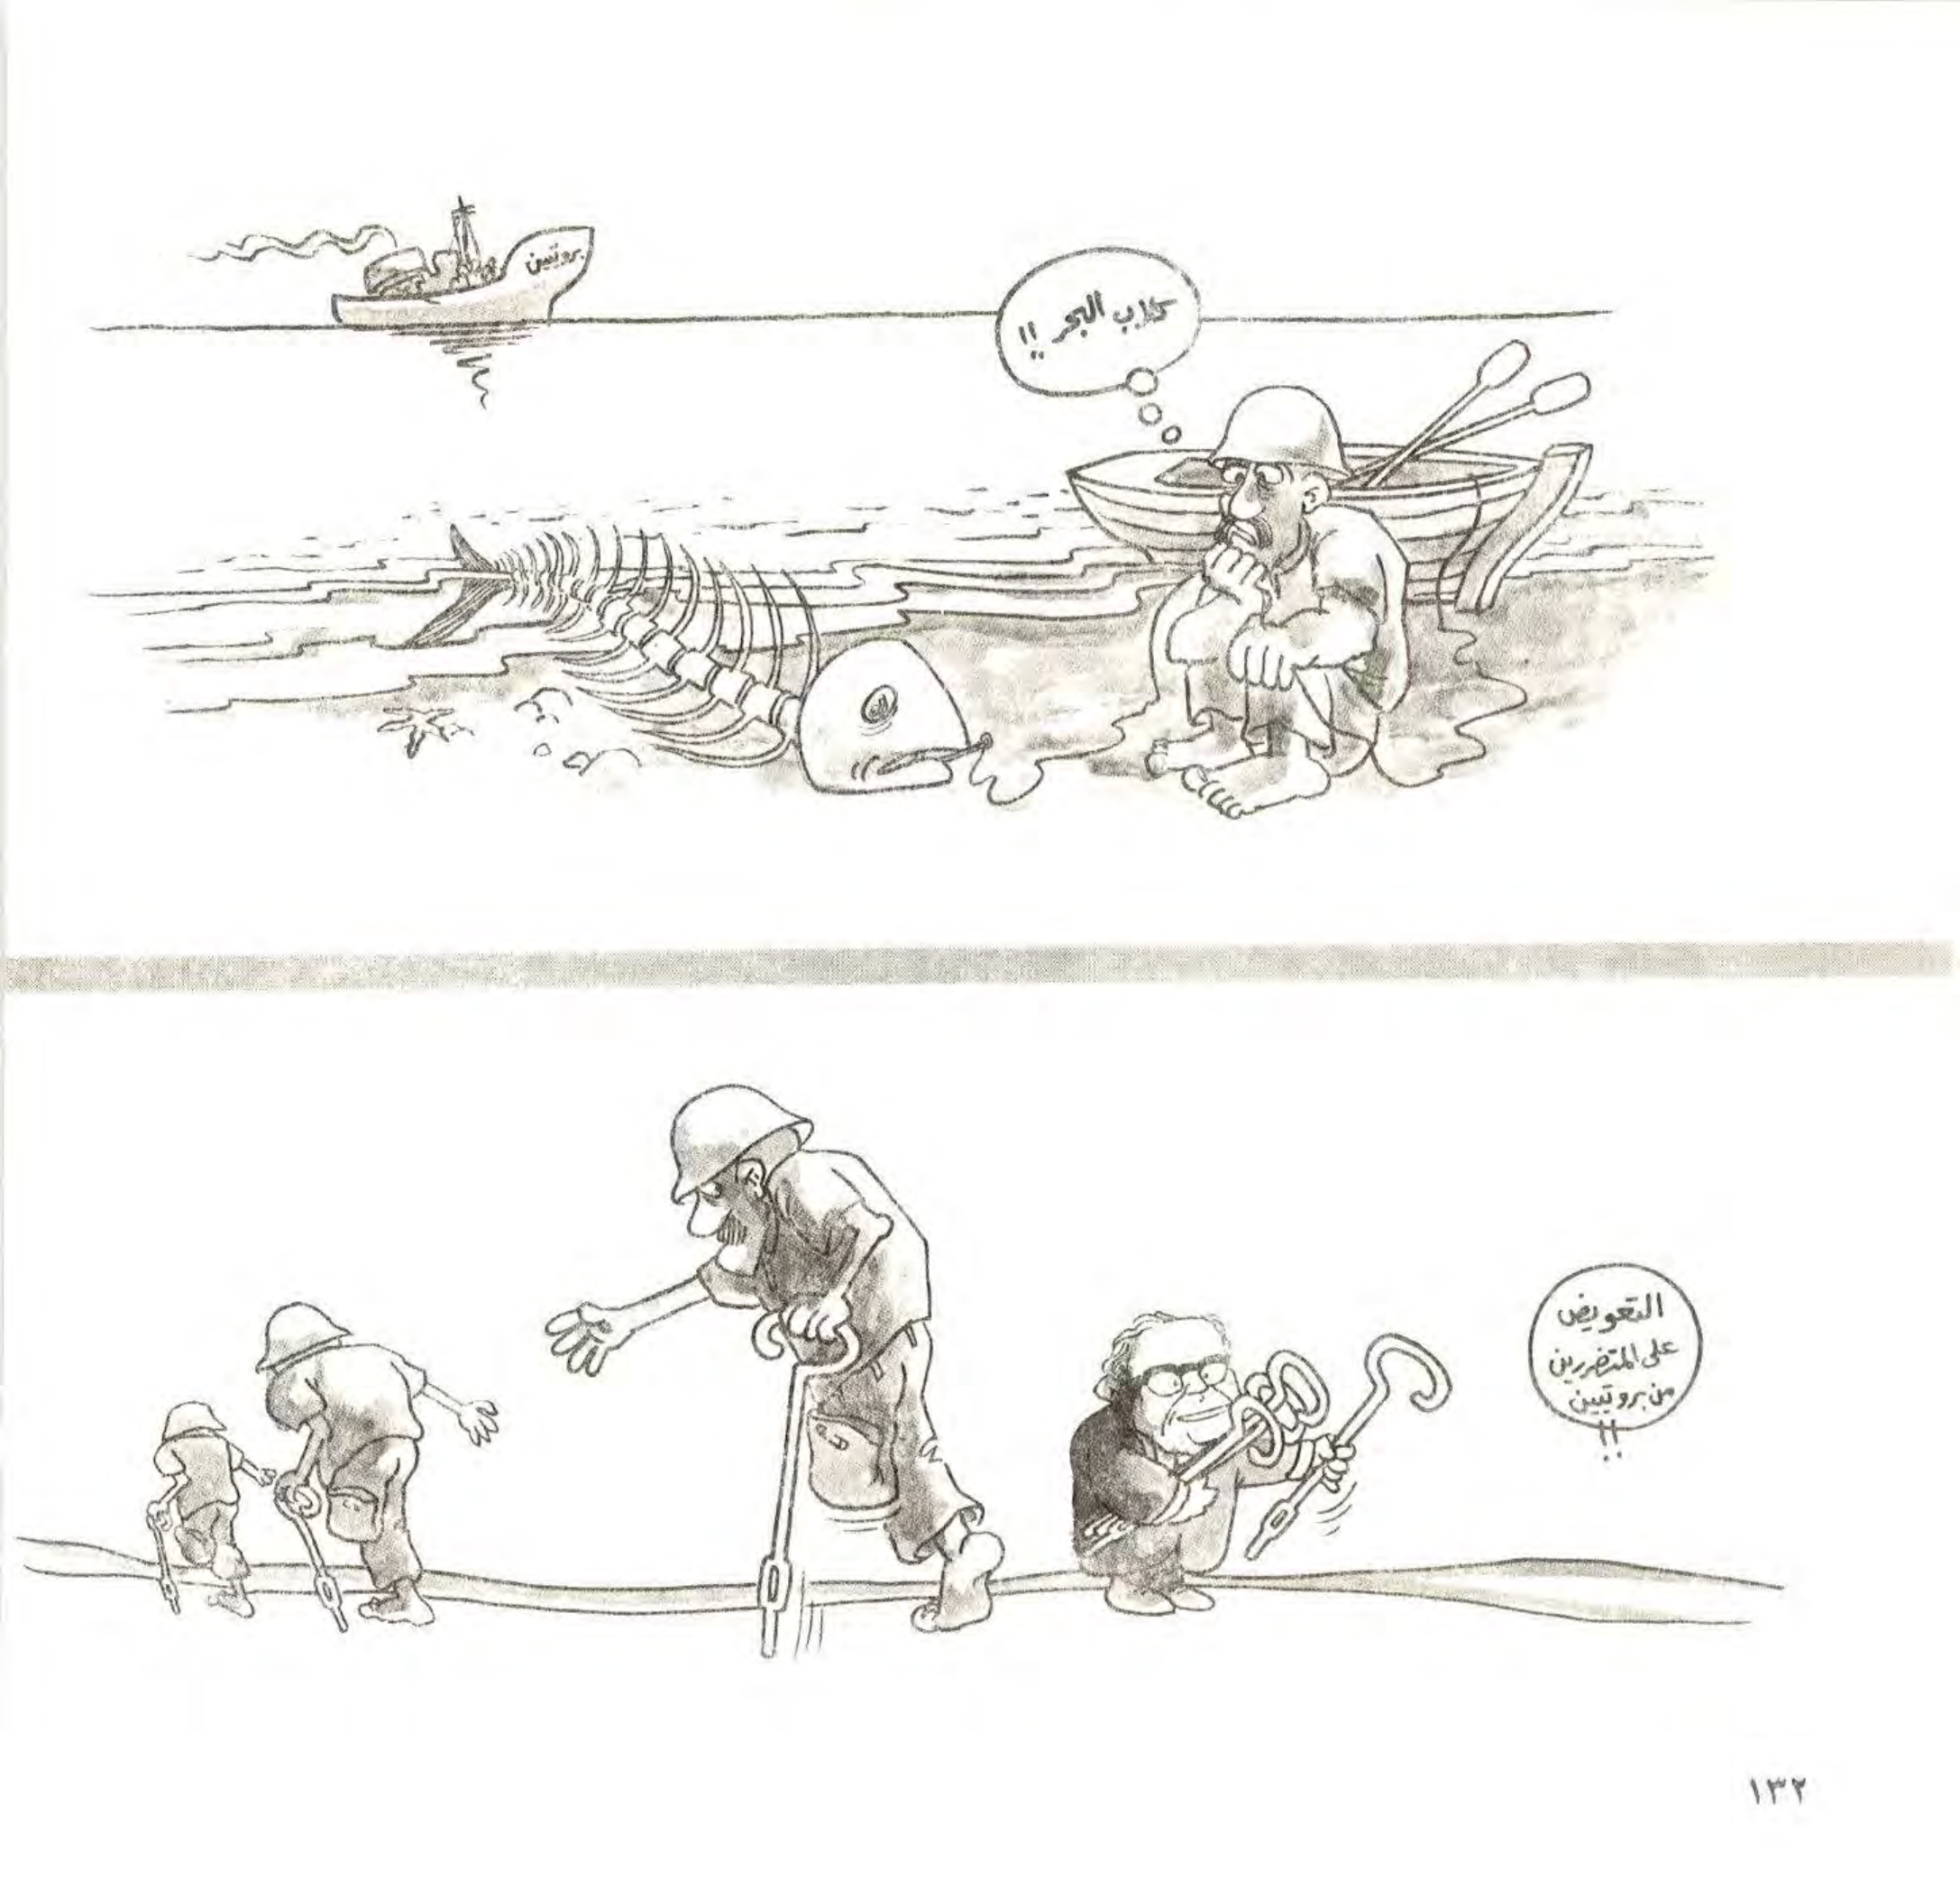 بروتيين
كلاب البحر !!
التعويض
على المتضررين
من بروتيين
!!
١٣٢